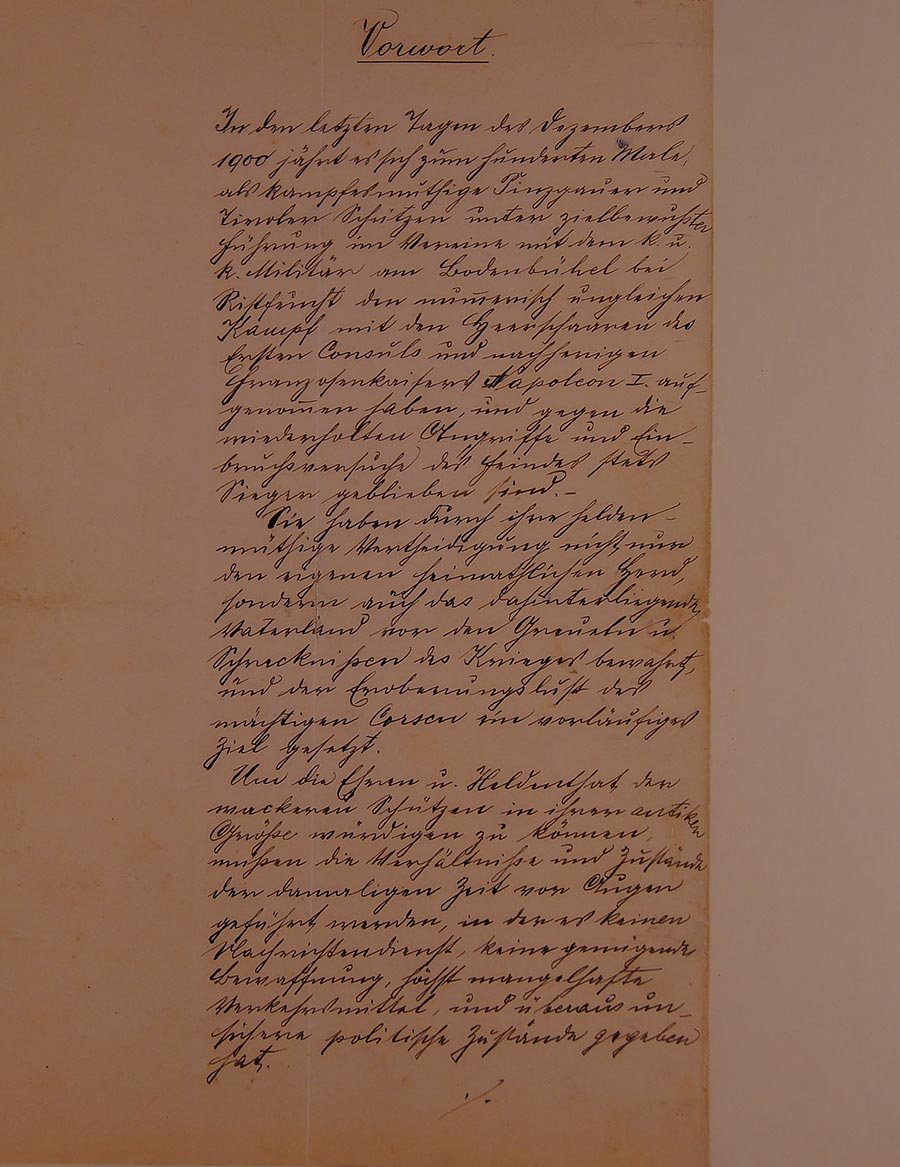 Vorwort.
In den letzten Tagen des Dezembers
1900 jährt es sich zum hunderten Male,
als kampfesmuthige Pinzgauer und
Tiroler Schützen unter zielbewußter
Führung im Vereine mit dem k. u.
k. Militär am Bodenbühel bei
Ristfeucht den numerisch ungleichen
Kampf mit den Heerschaaren des
Ersten Consuls und nachherigen
Franzosenkaisers Napoleon I. auf-
genommen haben, und gegen die
wiederholten Angriffe und Ein-
bruchsversuche des Feindes stets
Sieger geblieben sind.-
Sie haben durch ihre helden-
müthige Vertheidigung nicht nur
den eigenen heimathlichen Herd,
sondern auch das dahinterliegende
Vaterland vor den Greueln u.
Schrecknißen des Krieges bewahrt,
und der Eroberungslust des
mächtigen Corsen ein vorläufiges
Ziel gesetzt.
Um die Ehren u. Heldenthat der
wackeren Schützen in ihrer antiken
Größe würdigen zu können,
müßen die Verhältniße und Zustände
der damaligen Zeit vor Augen
geführt werden, in der es keinen
Nachrichtendienst, keine genügende
Bewaffnung, höchst mangelhafte
Verkehrsmittel, und überaus un-
sichere politische Zustände gegeben
hat.
./.